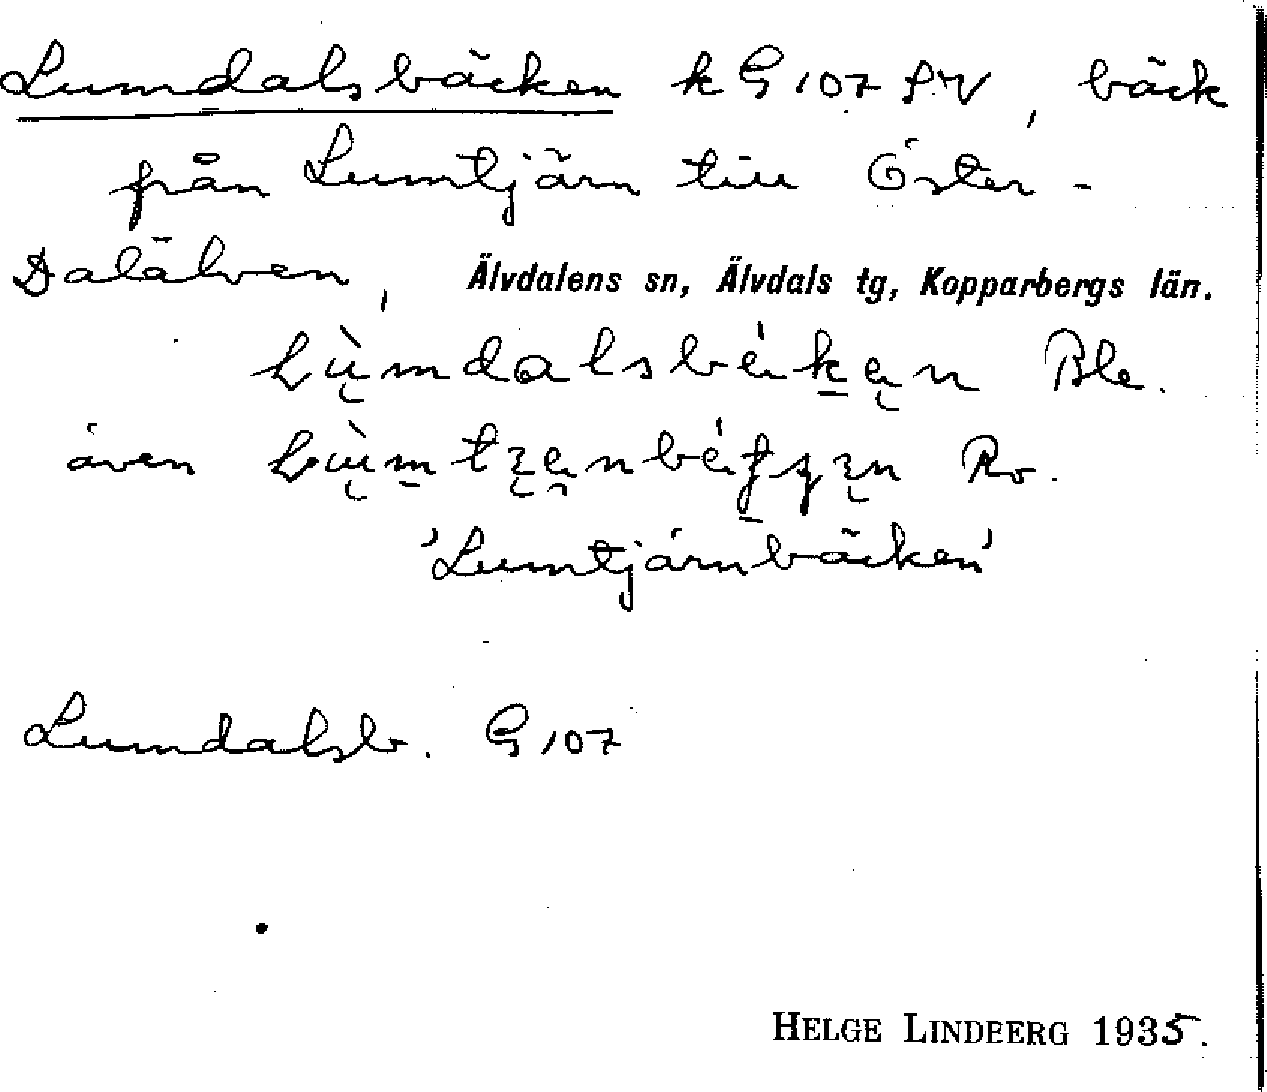 Lumdalsbäcken k G 107 SV, bäck
från Lumtjärn till Öster-
Dalälven, Älvdalens sn, Älvdals tg, Kopparbergs län.
Ble.
även Ro.
'Lumtjärnbäcken'
Lumdalsb. G 107
HELGE LINDBERG 1935.